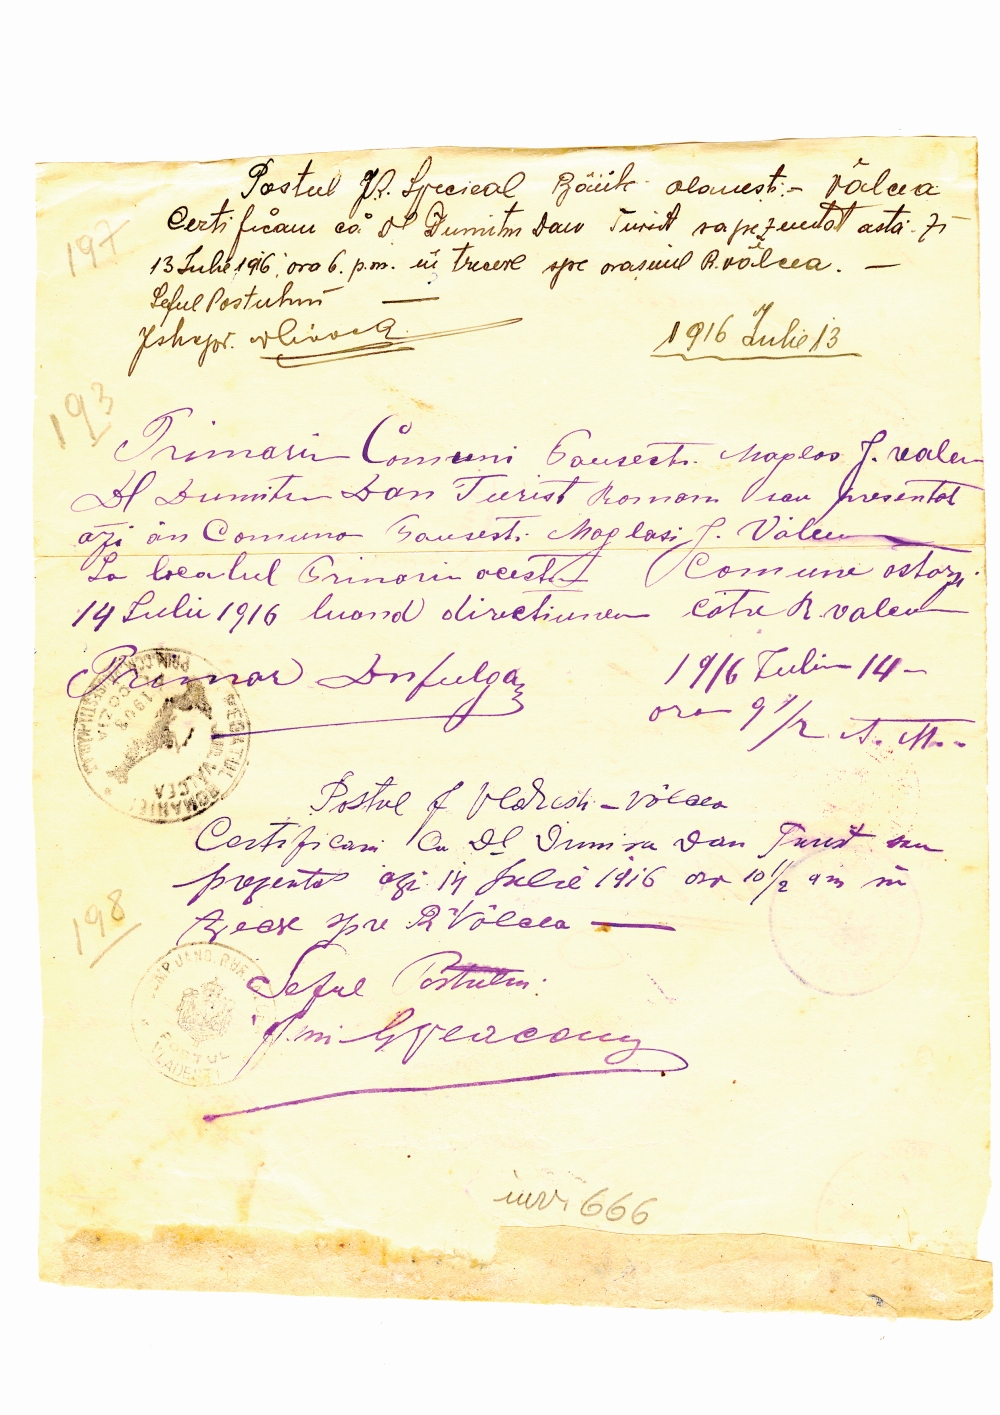 Postul JR. Special Băiile olanesti - Vâlcea
Certificăm că Dl Dumitru Dan Turist sa prezentat astă-zi
197
13 Iulie 1916, ora 6. p.m. în trecere spre orasiul R. vâlcea. —
Seful Postului —
1916 Iulie 13
193
Primaria Comuni Pausesti. Maglas J. valcea
Dl Dumitru Dan Turist Roman sau presentat
azi in Comuna Pausesti. Maglasi J. Vâlcea
La localul Primaria acestei Comune astazi
14 Iulie 1916 luand directiunea către R. valcea
Primar
1916 Iulie 14 -
ora 9 1/2 A. M. -
REGATUL ROMANIEI
VALCEA
1903
Postul J Vlădesti - Vâlcea
Certificam Ca Dl Dumitru Dan Turist sau
prezentat azi 14 Iulie 1916 ora 10 1/2 am in
trecere spre R Vâlcea —
198
Seful Postului.
COMP JAND. RUR.
POSTUL
VLADESTI
inv. 666